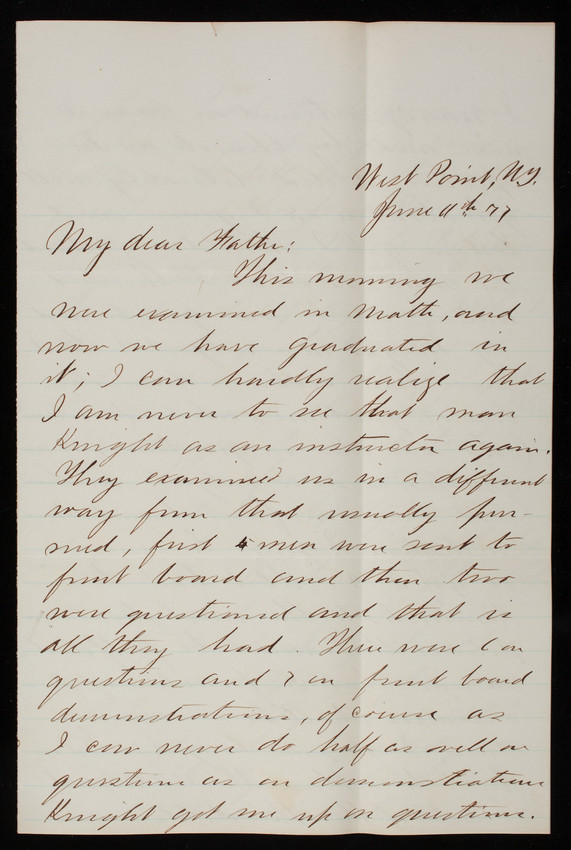 West Point, N.Y.
June 11th 77
My dear Father:
This morning we
were examined in Math, and
now we have graduated in
it; I can hardly realize that
I am never to see that man
Knight as an instructor again.
They examined us in a different
way from that usually pur-
sued, first 4 men were sent to
front board and then two
were questioned and that is
all they had. There were 6 on
questions and 7 on front board
demonstrations, of course as
I can never do half as well on
questions as on demonstrations
Knight got me up on questions.